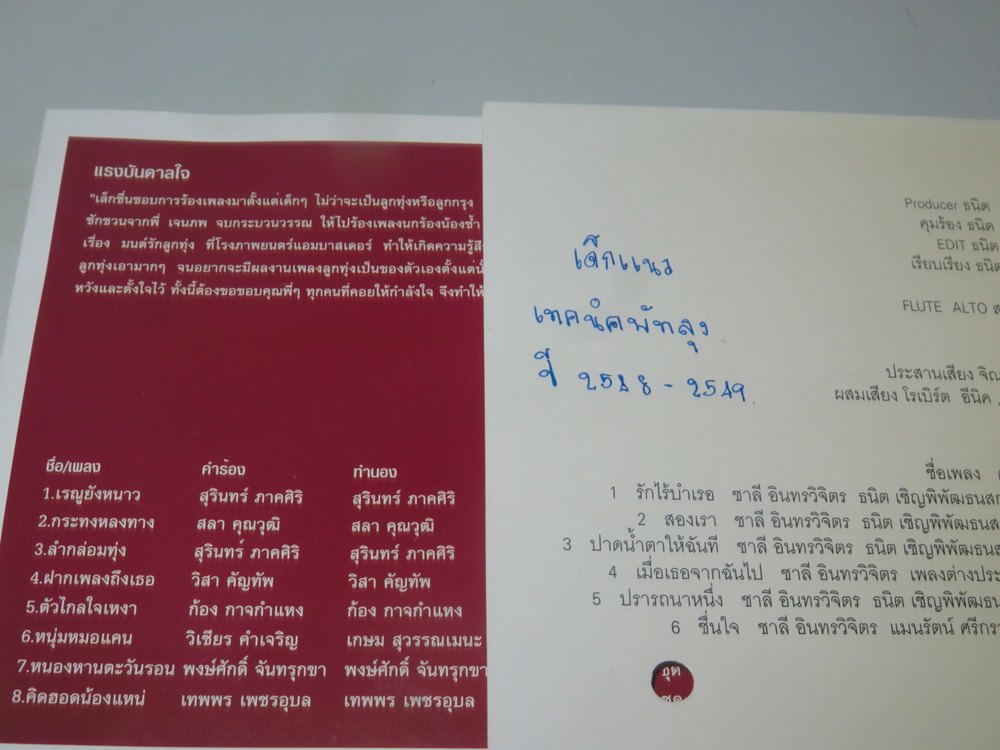 แรงบันดาลใจ
"เล็กชื่นชอบการร้องเพลงมาตั้งแต่เด็กๆ ไม่ว่าจะเป็นลูกทุ่งหรือลูกกรุง
ชักชวนจากพี่ เจนภพ จบกระบวนวรรณ ให้ไปร้องเพลงนกร้องน้องช้ำ
เรื่อง มนต์รักลูกทุ่ง ที่โรงภาพยนตร์แอมบาสเดอร์ ทำให้เกิดความรู้สึ
ลูกทุ่งเอามากๆ จนอยากจะมีผลงานเพลงลูกทุ่งเป็นของตัวเองตั้งแต่นั้
หวังและตั้งใจไว้ ทั้งนี้ต้องขอขอบคุณพี่ๆ ทุกคนที่คอยให้กำลังใจ จึงทำให้
ชื่อ/เพลง คำร้อง ทำนอง
1.เรณูยังหนาว สุรินทร์ ภาคศิริ สุรินทร์ ภาคศิริ
2.กระทงหลงทาง สลา คุณวุฒิ สลา คุณวุฒิ
3.ลำกล่อมทุ่ง สุรินทร์ ภาคศิริ สุรินทร์ ภาคศิริ
4.ฝากเพลงถึงเธอ วิสา คัญทัพ วิสา คัญทัพ
5.ตัวไกลใจเหงา ก้อง กาจกำแหง ก้อง กาจกำแหง
6.หนุ่มหมอแคน วิเชียร คำเจริญ เกษม สุวรรณเมนะ
7.หนองหานตะวันรอน พงษ์ศักดิ์ จันทรุกขา พงษ์ศักดิ์ จันทรุกขา
8.คิดฮอดน้องแหน่ เทพพร เพชรอุบล เทพพร เพชรอุบล
เด็กแนว
เทคนิคพัทลุง
ปี 2548 - 2549
Producer ธนิต
คุมร้อง ธนิต
EDIT ธนิต
เรียบเรียง ธนิต
FLUTE ALTO ส
ประสานเสียง จิณ
ผสมเสียง โรเบิร์ต อีนิค
ชื่อเพลง
1 รักไร้บำเรอ ชาลี อินทรวิจิตร ธนิต เชิญพิพัฒธนสก
2 สองเรา ชาลี อินทรวิจิตร ธนิต เชิญพิพัฒธนส
3 ปาดน้ำตาให้ฉันที ชาลี อินทรวิจิตร ธนิต เชิญพิพัฒธนส
4 เมื่อเธอจากฉันไป ชาลี อินทรวิจิตร เพลงต่างประ
5 ปรารถนาหนึ่ง ชาลี อินทรวิจิตร ธนิต เชิญพิพัฒน
6 ชื่นใจ ชาลี อินทรวิจิตร แมนรัตน์ ศรีกรา